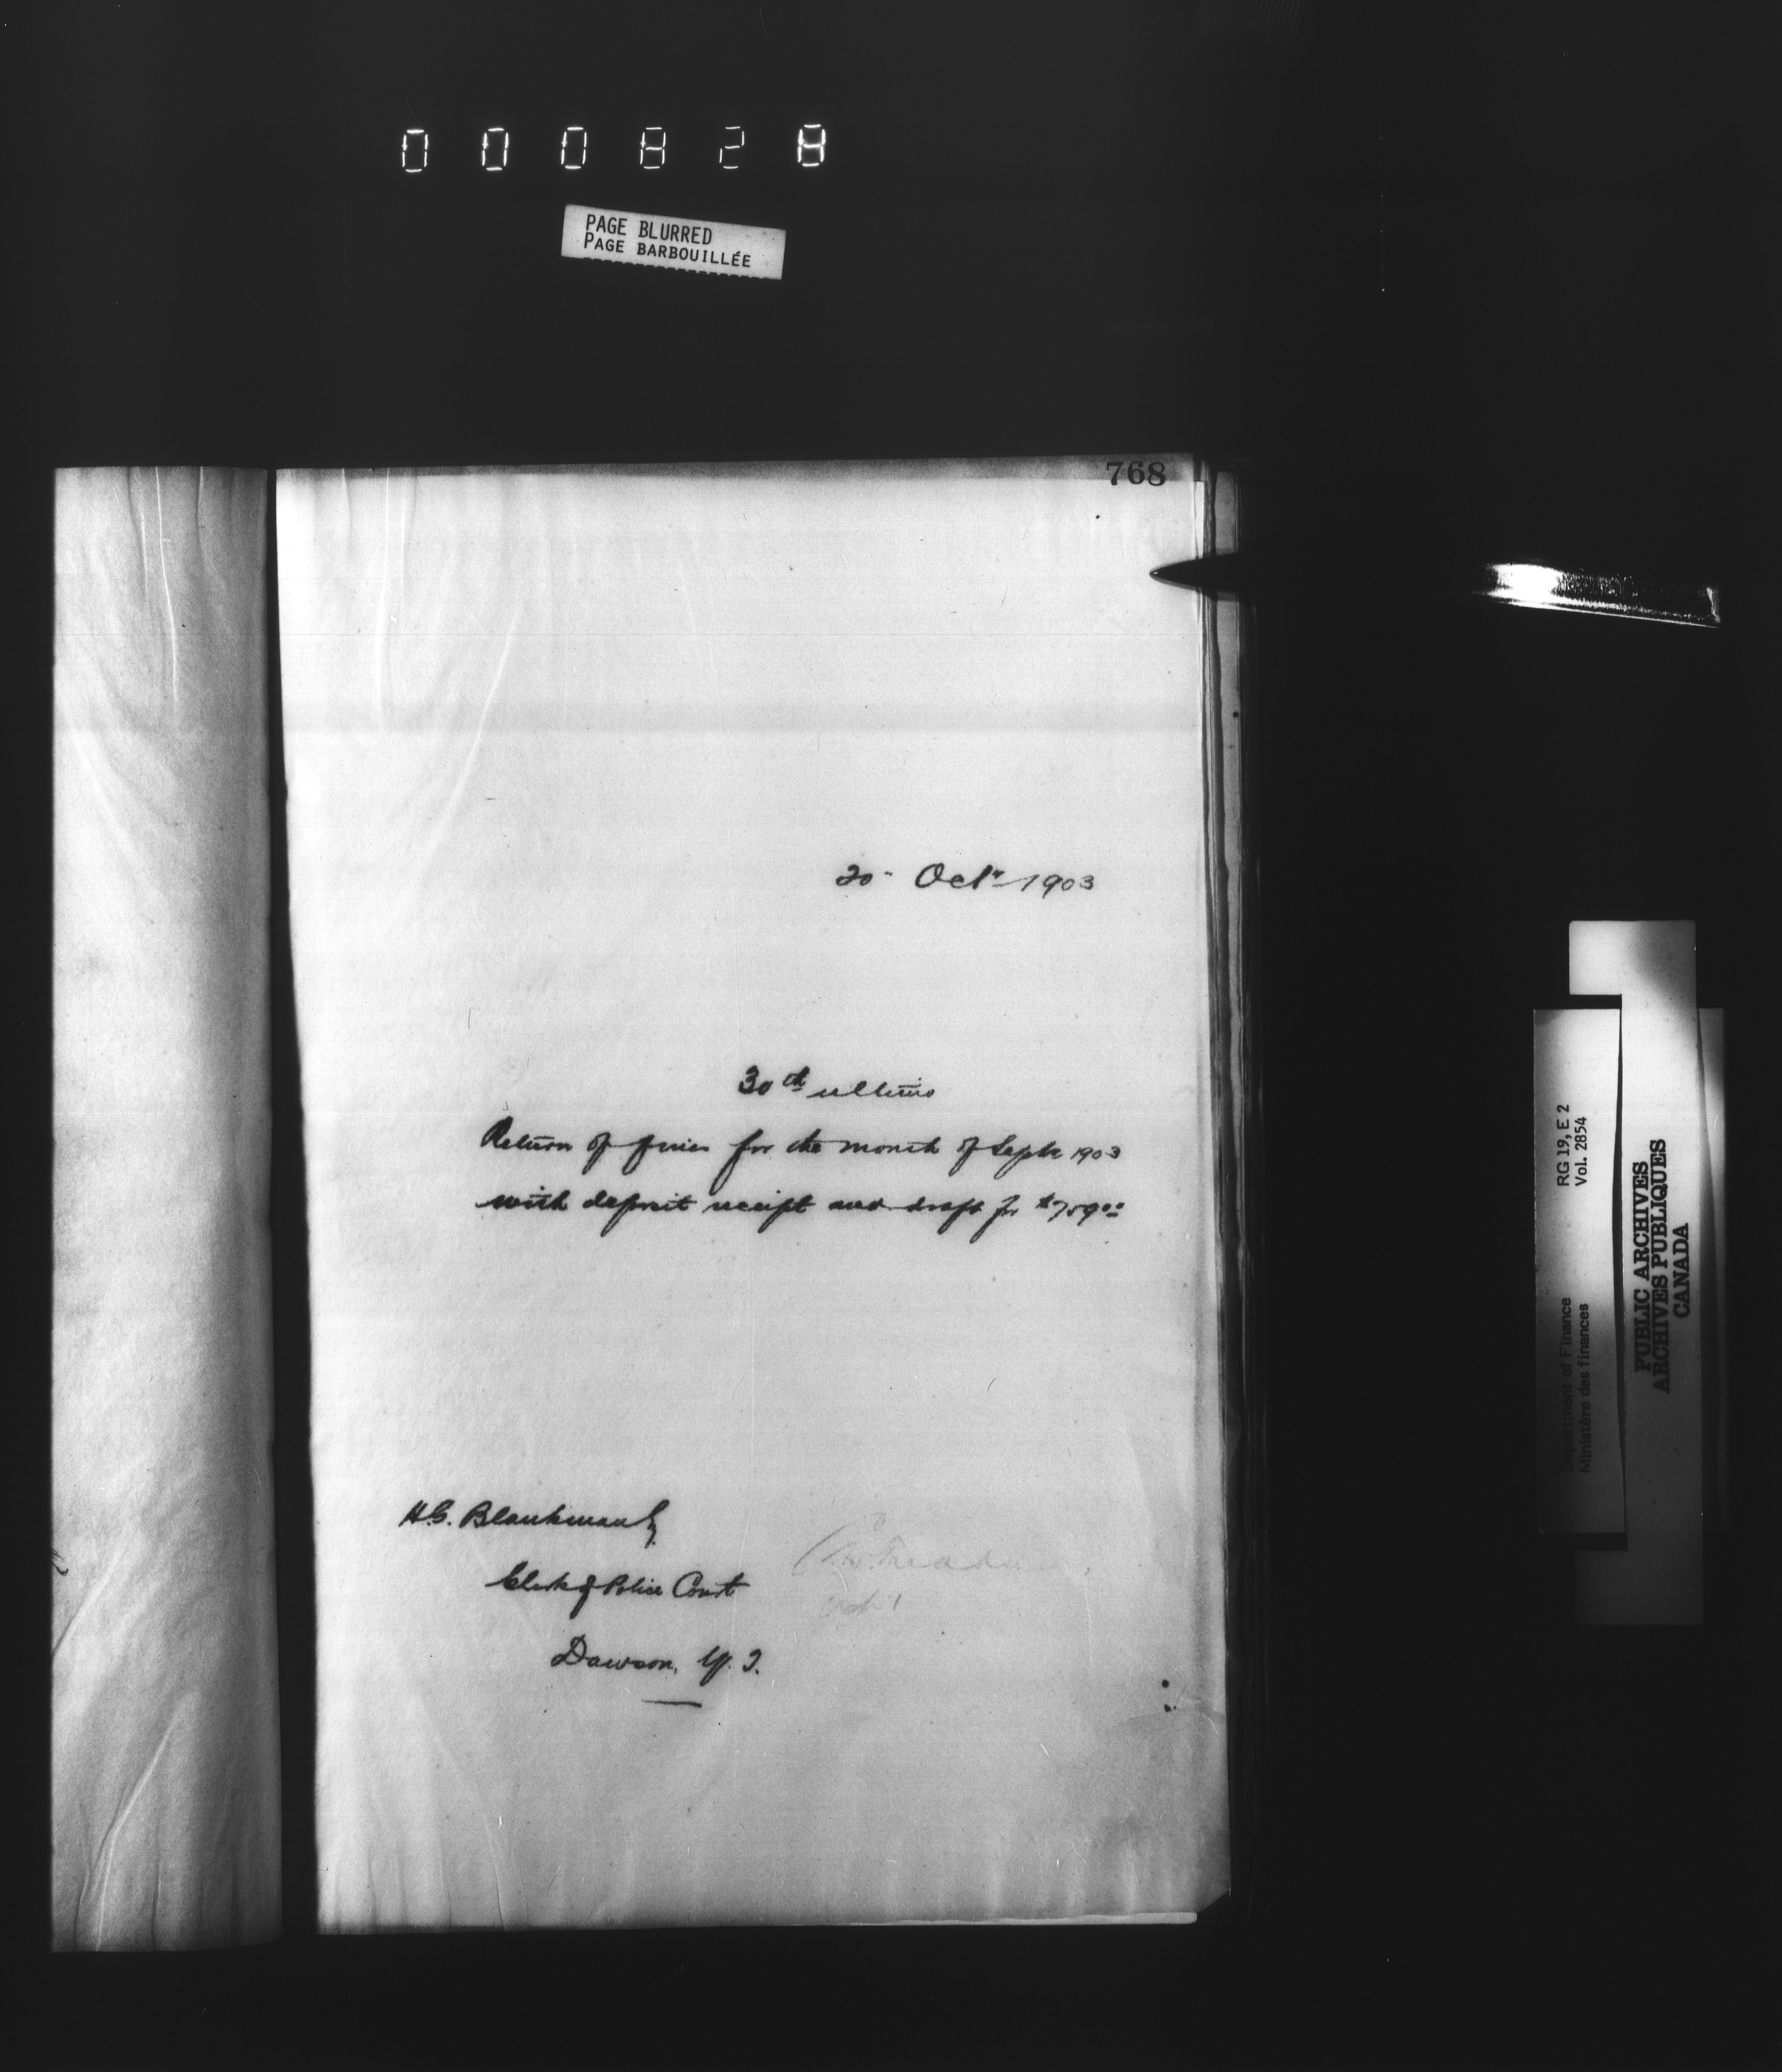 000828
PAGE BLURRED
PAGE BARBOUILLÉE
768
20 Octr 1903
30th ultimo
Return of fines for the month of Septr 1903
with deposit receipt and draft for $759.00
H.G. Blankman Esq.
Clerk of Police Court
Dawson, Y. T.
RG 19, E 2
Vol. 2854
Department of Finance
Ministère des finances
PUBLIC ARCHIVES
ARCHIVES PUBLIQUES
CANADA